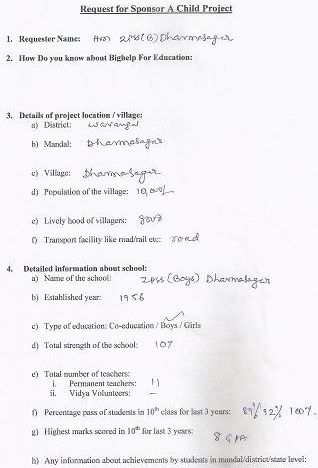 Request for Sponsor A Child Project
1. Requester Name: Hm ZPSS(B) Dharmasagar
2. How Do you know about Bighelp For Education:
3. Details of project location / village:
a) District: Warangal
b) Mandal: Dharmasagar
c) Village: Dharmasagar
d) Population of the village: 10,000/-
e) Lively hood of villagers: good
f) Transport facility like road/rail etc: road
4. Detailed information about school:
a) Name of the school: ZPSS (Boys) Dharmasagar
b) Established year: 1956
c) Type of education: Co-education / Boys / Girls
d) Total strength of the school: 107
e) Total number of teachers:
i. Permanent teachers: 11
ii. Vidya Volunteers: –
f) Percentage pass of students in 10th class for last 3 years: 89% 92% 100%.
g) Highest marks scored in 10th for last 3 years:
8 GPA
h) Any information about achievements by students in mandal/district/state level: